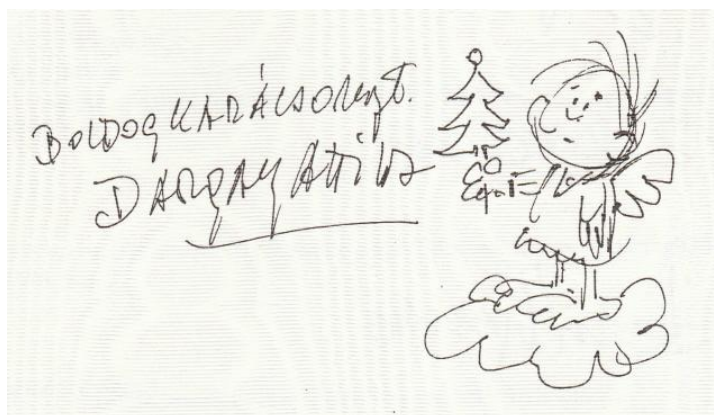 BOLDOG KARÁCSONYT.
DARGAY Attila